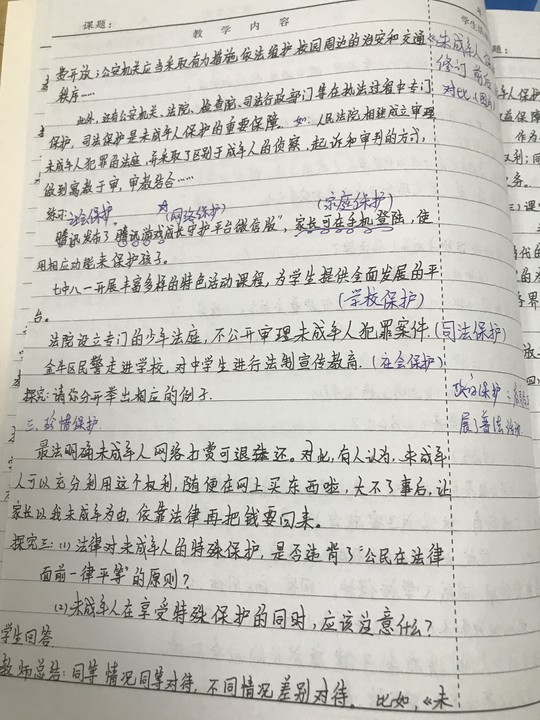 课题：
教 学 内 容
费开放；公安机关应当采取有力措施，依法维护校园周边的治安和交通
秩序……
此外，还有公安机关、法院、检查院、司法行政部门等在执法过程中专门
保护，司法保护是未成年人保护的重要保障。如：人民法院相继成立审理
未成年人犯罪的法庭，并采取了区别于成年人的侦察、起诉和审判的方式，
做到寓教于审，审教结合……
练习：社会保护。
(网络保护)
(家庭保护)
腾讯发布了"腾讯游戏成长守护平台微信版"，家长可在手机登陆，使
用相应功能来保护孩子。
七中八一开展丰富多样的特色活动课程，为学生提供全面发展的平
台。
(学校保护)
法院设立专门的少年法庭，不公开审理未成年人犯罪案件.(司法保护)
金牛区民警走进学校，对中学生进行法制宣传教育.(社会保护)
探究：请你分开举出相应的例子.
三、珍惜保护.
最法明确未成年人网络打赏可退还。对此，有人认为，未成年
人可以充分利用这个权利，随便在网上买东西啦，大不了事后，让
家长以我未成年为由，依靠法律再把钱要回来。
探究三：(1)法律对未成年人的特殊保护，是否违背了"公民在法律
面前一律平等"的原则？
(2)未成年人在享受特殊保护的同时，应该注意什么？
学生回答
教师总结：同等情况同等对待，不同情况差别对待。比如，《未
《未成年人
修订前后
对比(图片)
政府保护：
展普法